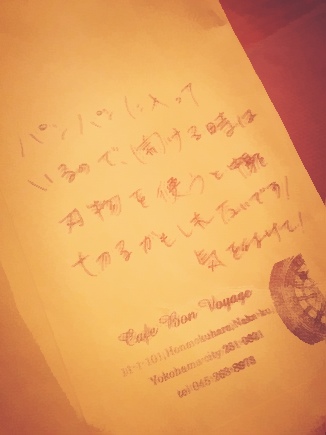 パンパンに入って
いるので、開ける時は
刃物を使うと
切るかもしれないです!
気を付けて!
Cafe Bon Voyage
Yokohama-city 231-0821
tel 045-263-8973